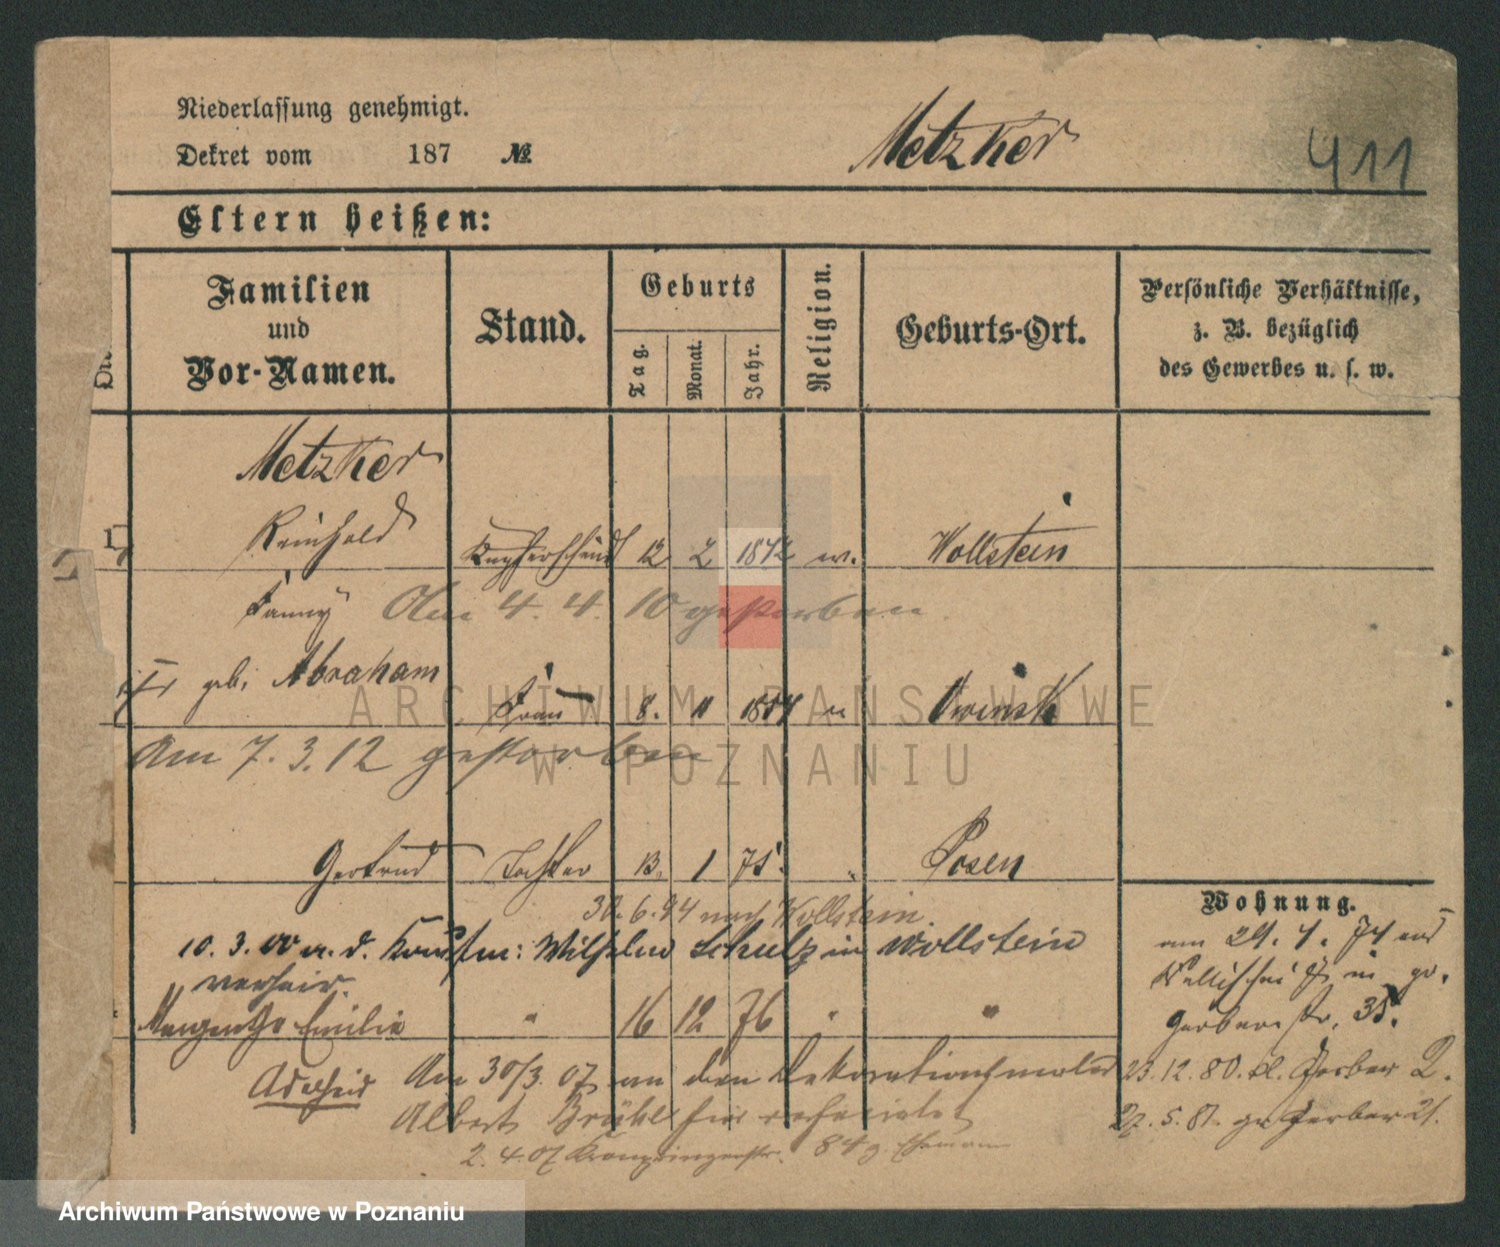 Niederlassung genehmigt.
Dekret vom 187 №
Metzker
411
Eltern heißen:
Familien und Vor-Namen.
Stand.
Geburts
Tag.
Monat.
Jahr.
Religion.
Geburts-Ort.
Persönliche Verhältnisse, z. B. bezüglich des Gewerbes u. s. w.
Metzker
Reinhold Kupferschmidt 12 2 1842 Wollstein
Fanny Am 4. 4. 10 gestorben
geb. Abraham
Frau 8. 11 Owinsk
Am 7. 3. 12 gestorben
Gertrud Tochter 13. 1 75. Posen
30. 6. 94 nach Wollstein.
10. 3. 00 a. d. Kaufm: Wilhelm Schulz in Wollstein
verheir.
Margarethe Emilie " 16 12 76 " "
Adelheid Am 30/3. 07 an den Dekorationsmaler
Albert Brühl hier verheiratet
2. 4. 07 Kronprinzenstr. 84 Ehemann
Wohnung.
am 29. 4. 74 aus
in gr.
Gerberstr. 38.
23. 12. 80. kl. Gerber 2.
27. 5. 81. gr. Gerber 21.
ARCHIWUM PAŃSTWOWE
W POZNANIU
Archiwum Państwowe w Poznaniu